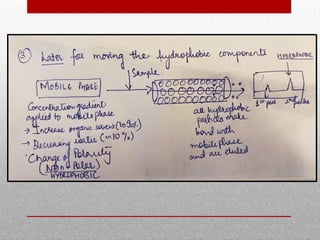 ③ Later for moving the hydrophobic components
HYDROPHOBIC
Sample
MOBILE PHASE
Concentration gradient
applied to mobile phase
→ Increase organic solvent (to 90%)
→ Decreasing water (~10%)
Change of Polarity
(Non Polar)
HYDROPHOBIC
all hydrophobic
particles make
bond with
mobile phase
and are eluted
1st peak
2nd